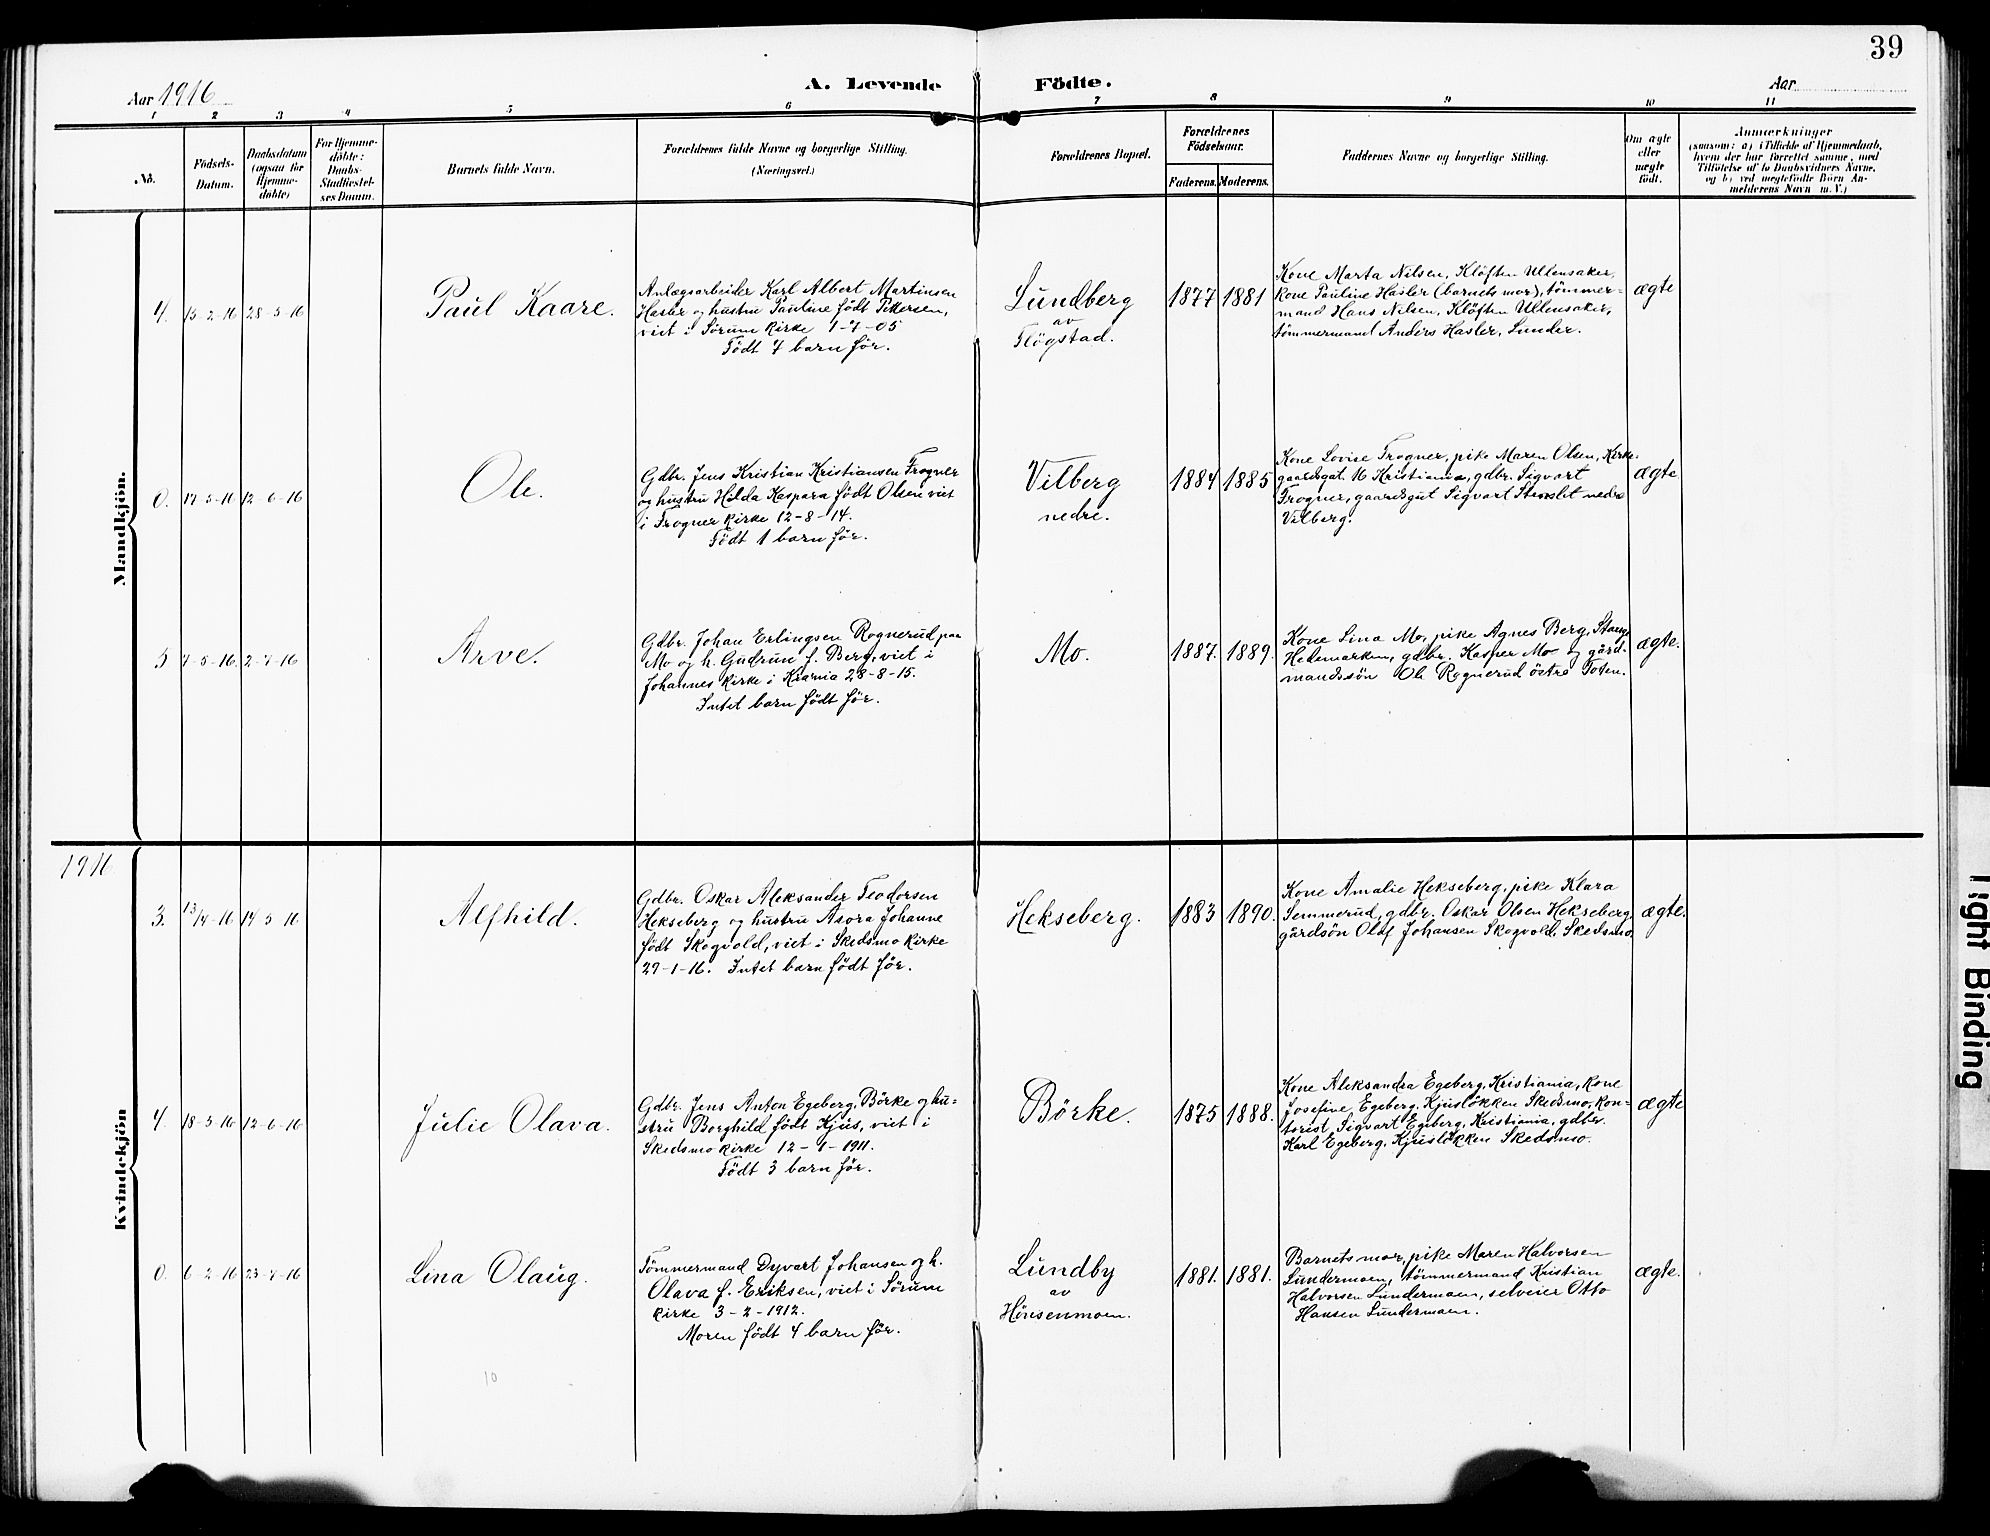 39
Aar 1916
A. Levende Födte.
Aar
1 2 3 4 5 6 7 8 9 10 11
No.
Födsels-
Datum.
Daabsdatum
(ogsaa for
Hjemme-
döbte)
For Hjemme-
döbte:
Daabs-
Stadfæstel-
ses Datum.
Barnets fulde Navn.
Forældrenes fulde Navne og borgerlige Stilling.
(Næringsvei.)
Forældrenes Bopæl.
Forældrenes
Födselsaar.
Faderens. Moderens.
Faddernes Navne og borgerlige Stilling.
Om ægte
eller
uægte
födt.
Anmærkninger
(saasom: a) i Tilfælde af Hjemmedaab,
hvem der har forrettet samme, med
Tilföielse af to Daabsvidners Navne,
og b) ved uægtefödte Börn An-
melderens Navn m. V.)
Mandkjön.
4. 15-2-16 28-5-16
Paul Kaare.
Anlægsarbeider Karl Albert Martinsen
Hasler og hustru Pauline födt Pettersen,
viet i Sörum kirke 1-7-05
Födt 4 barn för.
Lundberg
av
Flögstad.
1877 1881
Kone Marta Nilsen, Klöften Ullensaker,
kone Pauline Hasler (barnets mor), tömmer-
mand Hans Nilsen, Klöften Ullensaker,
tömmermand Anders Hasler, Sunder.
ægte
0. 17-5-16 12-6-16
Ole.
Gdbr. Jens Kristian Kristiansen Frogner
og hustru Hilda Kaspara födt Olsen viet
i Frogner kirke 12-8-14.
Födt 1 barn för.
Vilberg
nedre.
1884 1885
Kone Lovise Frogner, pike Maren Olsen, Kirke-
gaardsgat. 16 Kristiania, gdbr. Sigvart
Frogner, gaardsgut Sigvart nedre
Vilberg.
ægte
5 7-5-16. 2-7-16
Arve.
Gdbr. Johan Erlingsen Rognerud paa
Mo og h. Gudrun f. Berg, viet i
Johannes kirke i Krania 28-8-15.
Intet barn födt för.
Mo.
1887. 1889.
Kone Lina Mo, pike Agnes Berg, Stange
Hedemarken, gdbr. Kasper Mo og gård-
mandssön Ole Rognerud östre Toten.
ægte.
1916
Kvindekjön
3. 13/4-16 14-5-16
Alfhild.
Gdbr. Oskar Aleksander Teodorsen
Hekseberg og hustru Asora Johanne
födt Skogvold, viet i Skedsmo kirke
29-1-16. Intet barn födt för.
Hekseberg.
1883 1890.
Kone Amalie Hekseberg, pike Klara
Semmerud, gdbr. Oskar Olsen Hekseberg,
gårdsön Olaf Johansen Skogvold, Skedsmo.
ægte.
4. 18-3-16 12-6-16
Julie Olava.
Gdbr. Jens Anton Egeberg, Börke og hu-
stru Borghild födt Kjus, viet i
Skedsmo kirke 12-1-1911.
Födt 3 barn för.
Börke.
1875 1888.
Kone Aleksandra Egeberg, Kristiania, kone
Josefine Egeberg, Kjuslökken Skedsmo, kon-
torist Sigvart Egeberg, Kristiania, gdbr.
Karl Egeberg, Kjuslökken Skedsmo.
ægte
0. 6-2-16 23-7-16
Lina Olaug.
Tömmermand Dyvart Johansen og h.
Olava f. Eriksen, viet i Sörum
kirke 3-2-1912.
Moren födt 4 barn för.
Lundby
av
Hönsenmoen.
1881. 1881.
Barnets mor, pike Maren Halvorsen
Lundermoen, tömmermand Kristian
Halvorsen Lundermoen, selveier Otto
Hansen Lundermoen.
ægte.
10
Tight Binding